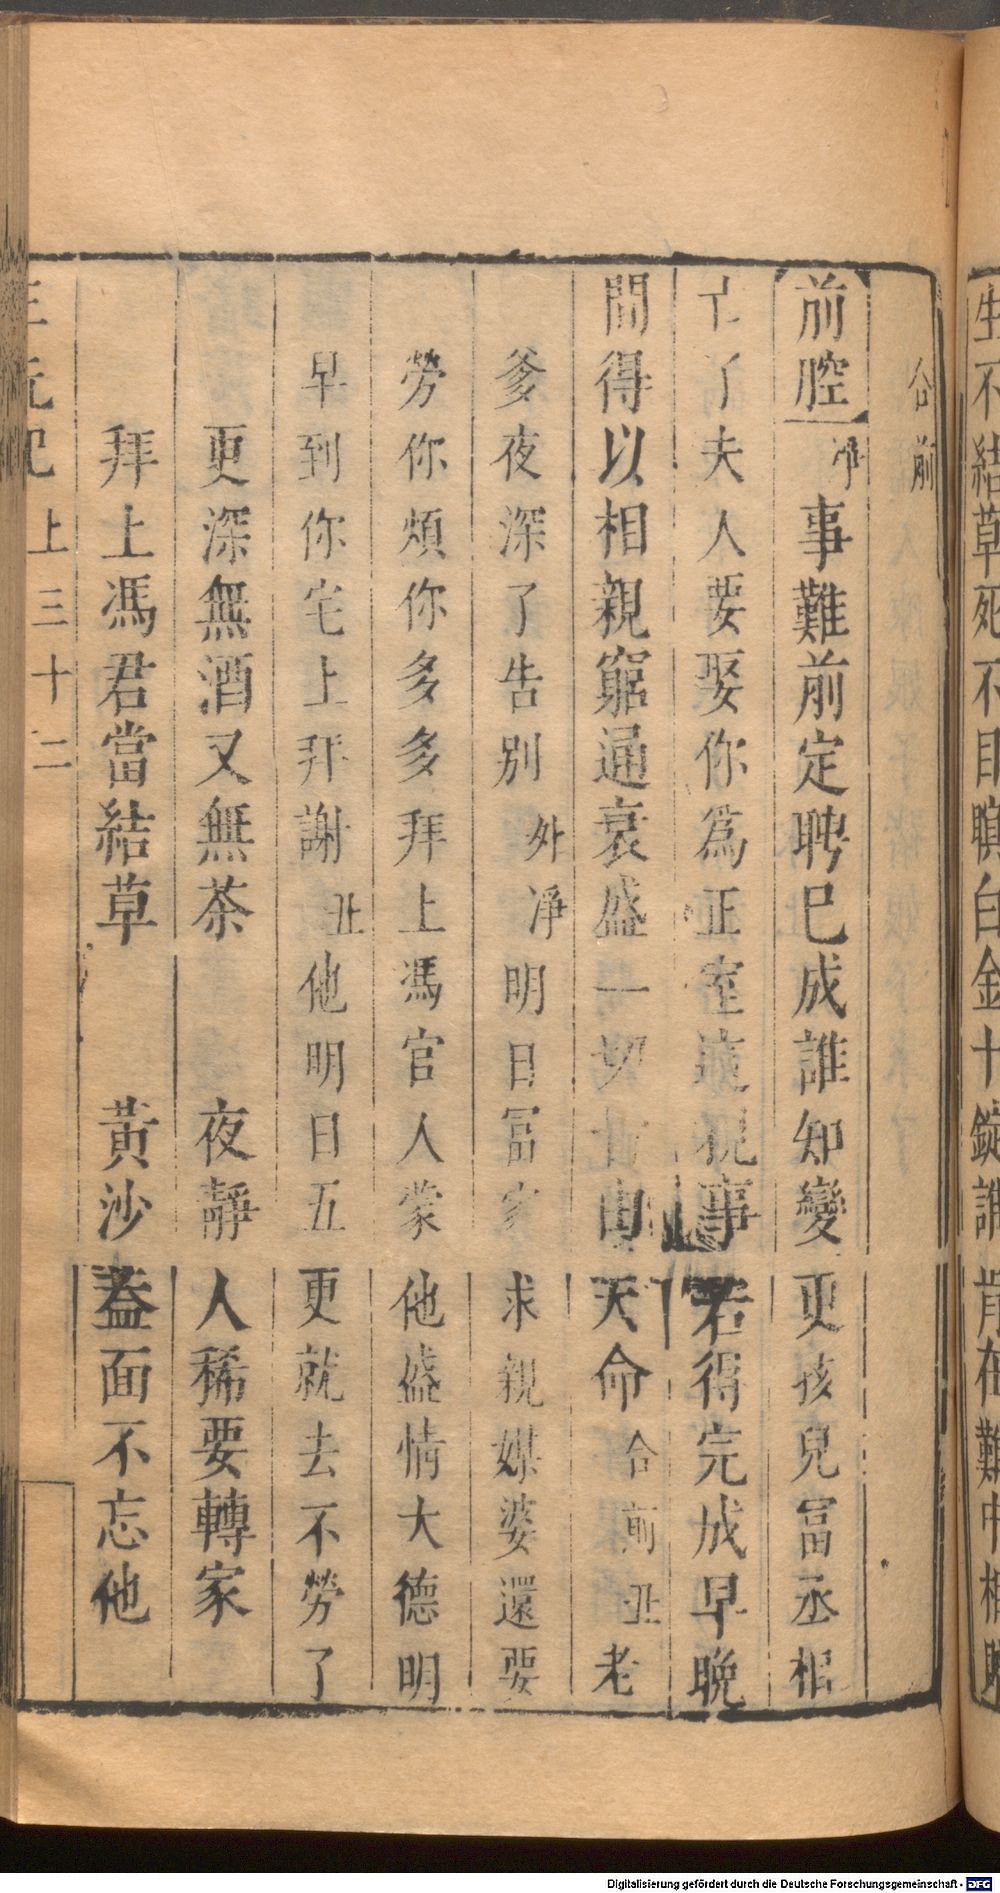 生不結草死不目瞑白金十錠誰肯在難中相
合前
前腔 淨 事難前定聘已成誰知變更孩兒冨丞相
亡了夫人要娶你爲正室事若得完成早晚
間得以相親窮通衰盛一切皆由天命 合前 丑 老
爹夜深了告别 外 淨 明日冨家求親媒婆還要
勞你煩你多多拜上馮官人蒙他盛情大德明
早到你宅上拜謝 丑 他明日五更就去不勞了
更深無酒又無茶 夜靜人稀要轉家
拜上馮君當結草 黃沙蓋面不忘他
三元記 上 三十二
Digitalisierung gefördert durch die Deutsche Forschungsgemeinschaft - DFG